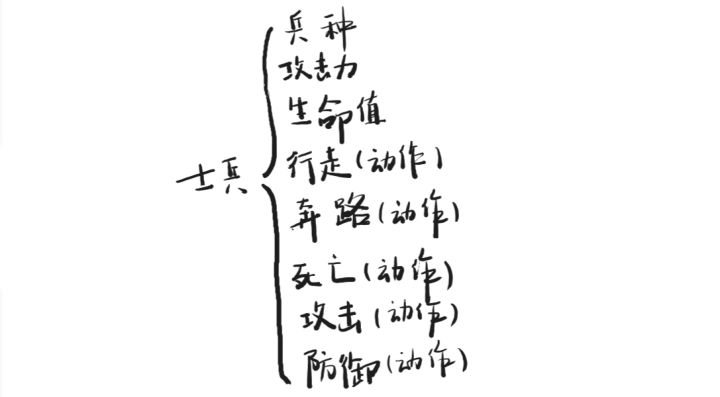 士兵
兵种
攻击力
生命值
行走(动作)
奔路(动作)
死亡(动作)
攻击(动作)
防御(动作)